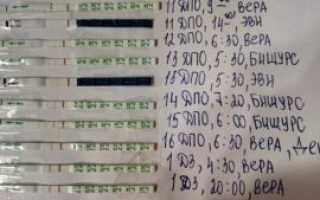 11 ДПО, 9⁰⁰, ВЕРА
11 ДПО, 14⁰⁰, ЭВН
12 ДПО, 6:30, ВЕРА
13 ДПО, 5:30, БИШУРС
13 ДПО, 5:30, ЭВН
14 ДПО, 7:20, БИШУРС
15 ДПО, 6:00, БИШУРС
16 ДПО, 6:30, ВЕРА,
1 ДЗ, 4:30, ВЕРА
1 ДЗ, 20:00, ВЕРА